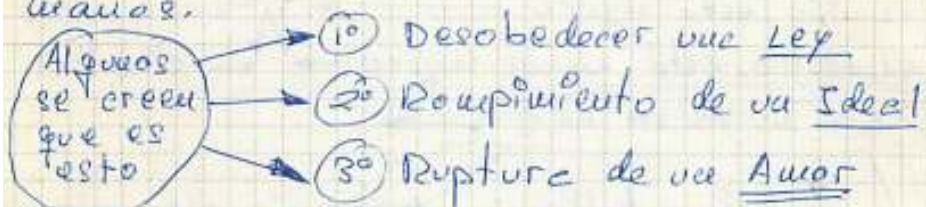 manos.
Algunos
se creen
que es
esto
1º Desobedecer una Ley
2º Rompimiento de un Ideal
3º Ruptura de un Amor